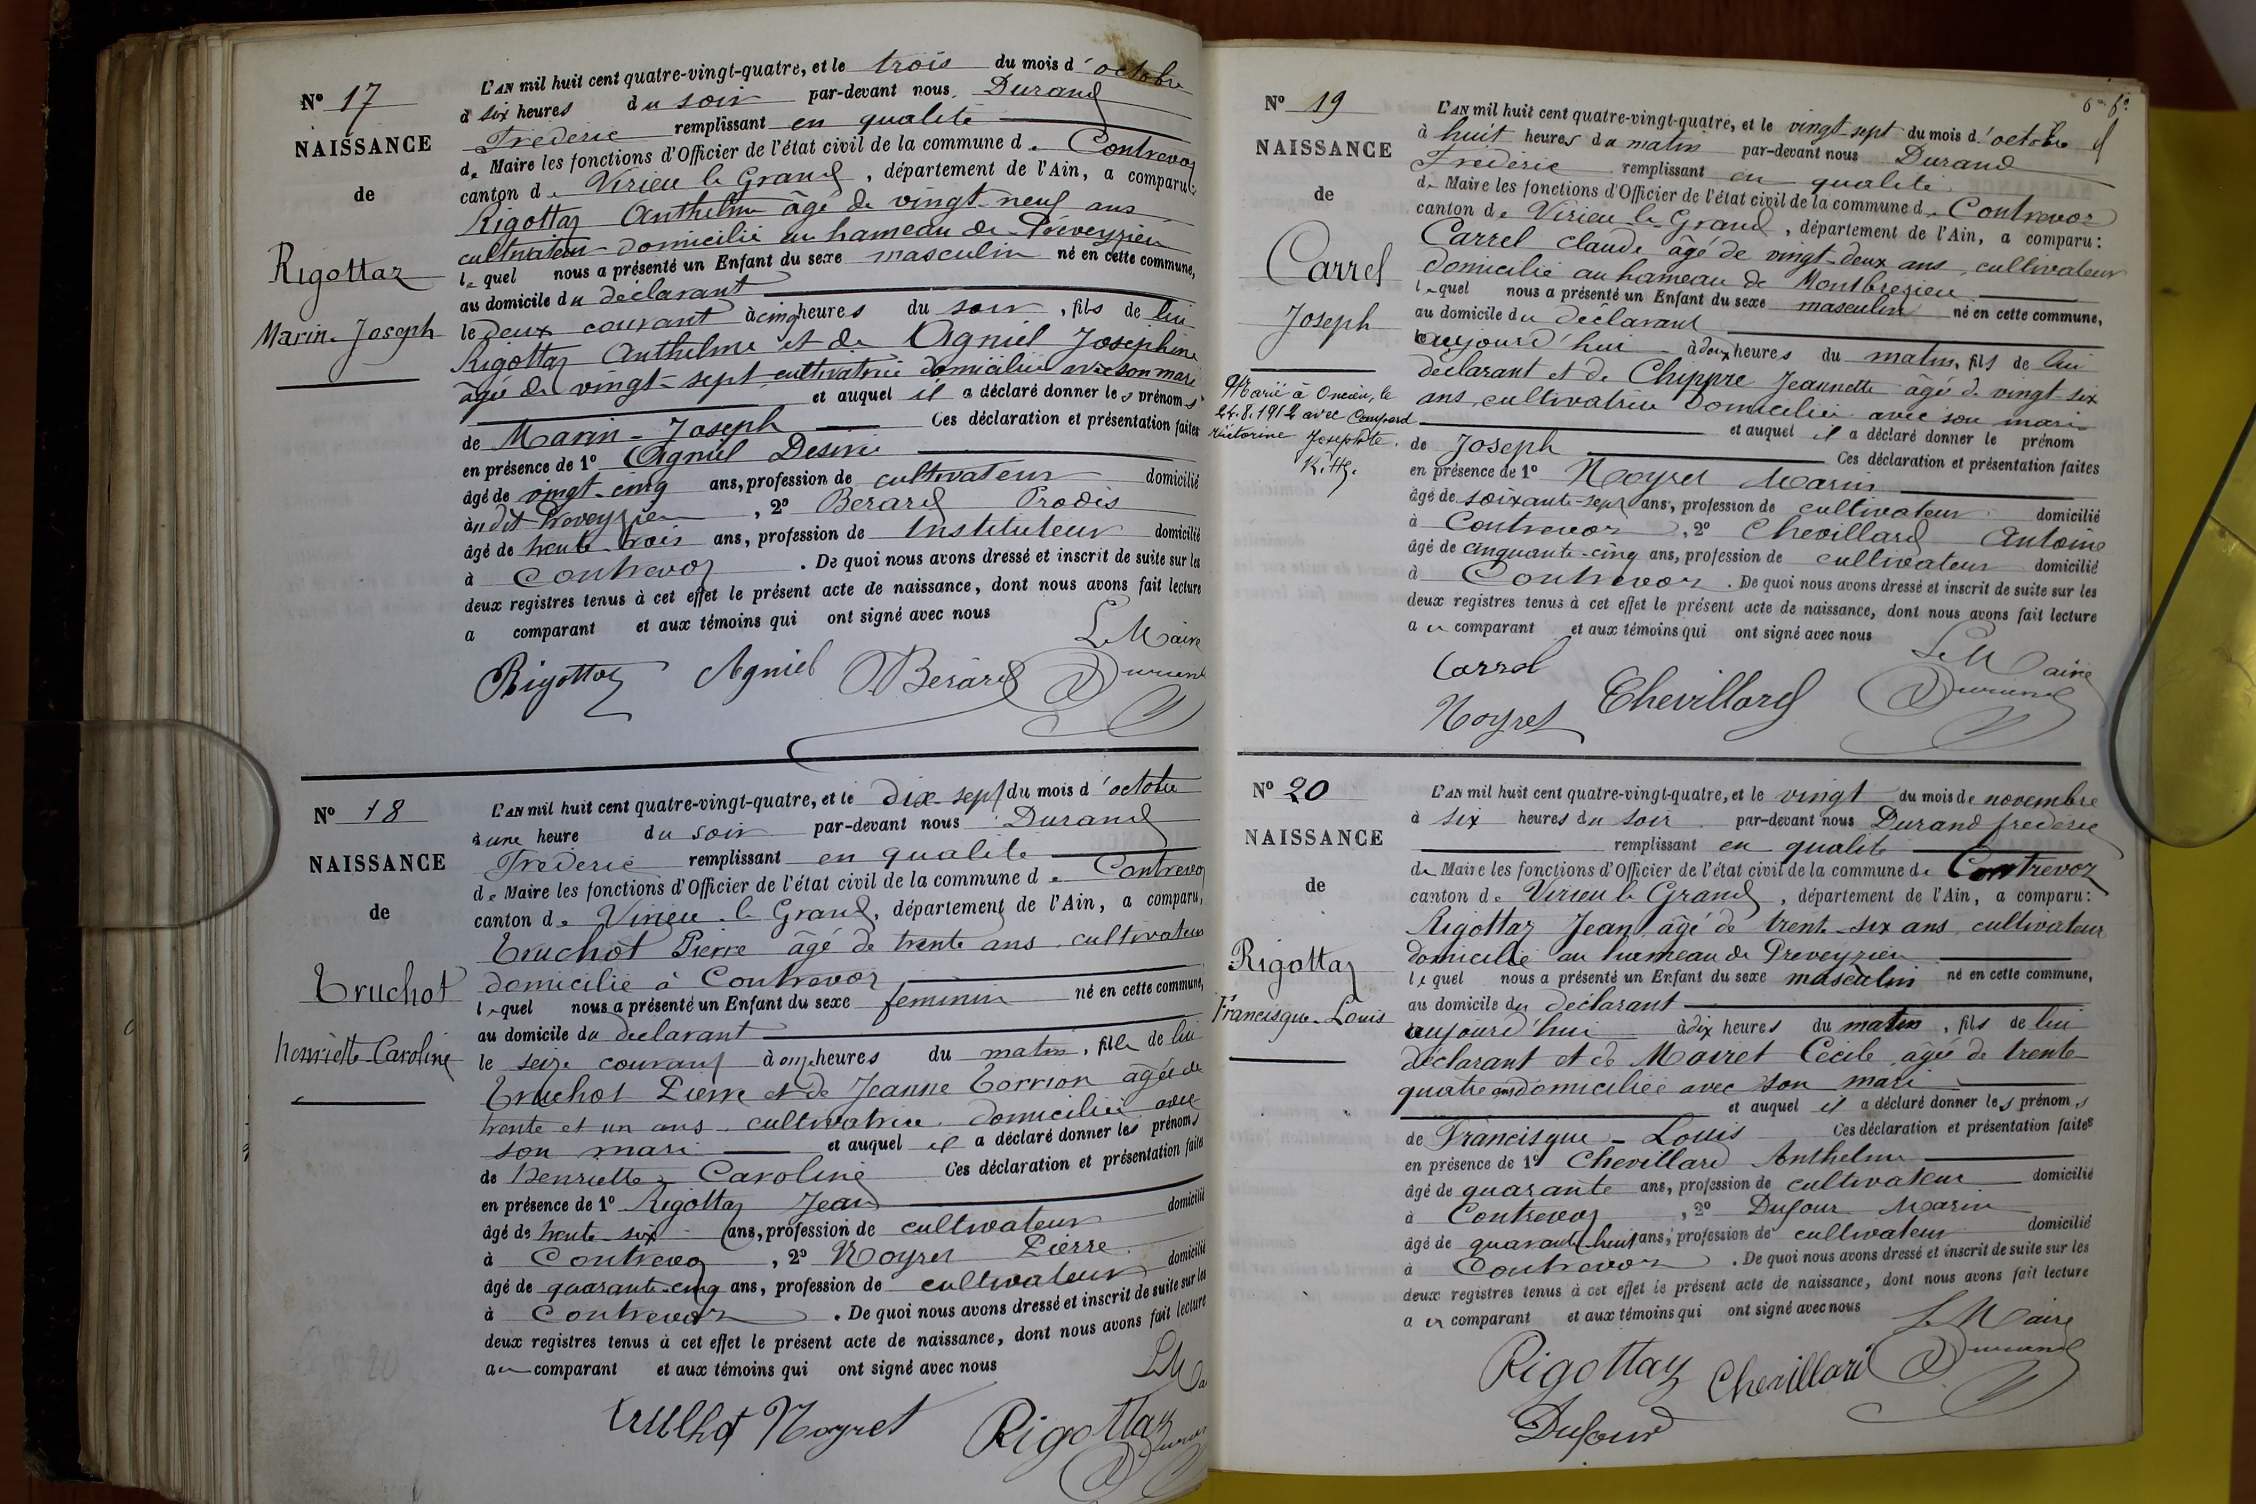 N° 17
NAISSANCE
de
Rigottaz
Marin-Joseph
L'AN mil huit cent quatre-vingt-quatre, et le trois du mois d'octobre
à six heures du soir par-devant nous Durand
Frédéric remplissant en qualité
de Maire les fonctions d'Officier de l'état civil de la commune de Contrevoz
canton de Virieu le Grand, département de l'Ain, a comparu:
Rigottaz Anthelme âgé de vingt-neuf ans
cultivateur domicilié au hameau de Préveyzieu
lequel nous a présenté un Enfant du sexe masculin né en cette commune,
au domicile du déclarant
le deux courant à cinq heures du soir, fils de lui
Rigottaz Anthelme et de Agniel Joséphine
âgée de vingt-sept cultivatrice domiciliée avec son mari
et auquel il a déclaré donner les prénoms
de Marin-Joseph Ces déclaration et présentation faites
en présence de 1° Agniel Désiré
âgé de vingt-cinq ans, profession de cultivateur domicilié
audit Preveyzieu, 2° Berard Prodis
âgé de trente-trois ans, profession de Instituteur domicilié
à Contrevoz. De quoi nous avons dressé et inscrit de suite sur les
deux registres tenus à cet effet le présent acte de naissance, dont nous avons fait lecture
a comparant et aux témoins qui ont signé avec nous
Le Maire
Rigottaz Agniel Bérard Durand
N° 18
NAISSANCE
de
Truchot
henriette-Caroline
L'AN mil huit cent quatre-vingt-quatre, et le dix-sept du mois d'octobre
à une heure du soir par-devant nous Durand
Frédéric remplissant en qualité
de Maire les fonctions d'Officier de l'état civil de la commune de Contrevoz
canton de Virieu le Grand, département de l'Ain, a comparu,
Truchot Pierre âgé de trente ans cultivateur
domicilié à Contrevoz
lequel nous a présenté un Enfant du sexe feminin né en cette commune,
au domicile du déclarant
le seize courant à onze heures du matin, fille de lui
Truchot Pierre et de Jeanne Torrion âgée de
trente et un ans cultivatrice domiciliée avec
son mari et auquel il a déclaré donner les prénoms
de Henriette-Caroline Ces déclaration et présentation faites
en présence de 1° Rigottaz Jean
âgé de trente-six ans, profession de cultivateur domicilié
à Contrevoz, 2° Noyret Pierre
âgé de quarante-cinq ans, profession de cultivateur domicilié
à Contrevoz. De quoi nous avons dressé et inscrit de suite sur les
deux registres tenus à cet effet le présent acte de naissance, dont nous avons fait lecture
au comparant et aux témoins qui ont signé avec nous
Le Ma
Truchot Noyret Rigottaz Durand
6e fo
N° 19
NAISSANCE
de
Carrel
Joseph
Marié à Oncieu, le
24.8.1912 avec
Victorine Josephte.
L'AN mil huit cent quatre-vingt-quatre, et le vingt-sept du mois d'octobre
à huit heures du matin par-devant nous Durand
Frédéric remplissant en qualité
de Maire les fonctions d'Officier de l'état civil de la commune de Contrevoz
canton de Virieu-le-Grand, département de l'Ain, a comparu:
Carrel Claude âgé de vingt-deux ans, cultivateur
domicilié au hameau de Montbrezieu
lequel nous a présenté un Enfant du sexe masculin né en cette commune,
au domicile du déclarant
aujourd'hui à deux heures du matin, fils de lui
déclarant et de Chippre Jeannette âgée de vingt-six
ans cultivatrice domiciliée avec son mari
et auquel il a déclaré donner le prénom
de Joseph Ces déclaration et présentation faites
en présence de 1° Noyret Marin
âgé de soixante-sept ans, profession de cultivateur domicilié
à Contrevoz, 2° Chevillard Antoine
âgé de cinquante-cinq ans, profession de cultivateur domicilié
à Contrevoz. De quoi nous avons dressé et inscrit de suite sur les
deux registres tenus à cet effet le présent acte de naissance, dont nous avons fait lecture
au comparant et aux témoins qui ont signé avec nous
Le Maire
Carrel Chevillard Durand
Noyret
N° 20
NAISSANCE
de
Rigottaz
Francisque-Louis
L'AN mil huit cent quatre-vingt-quatre, et le vingt du mois de novembre
à six heures du soir par-devant nous Durand frédéric
remplissant en qualité
de Maire les fonctions d'Officier de l'état civil de la commune de Contrevoz
canton de Virieu le Grand, département de l'Ain, a comparu:
Rigottaz Jean âgé de trent-six ans cultivateur
domicilié au hameau de Preveyzieu
lequel nous a présenté un Enfant du sexe masculin né en cette commune,
au domicile du déclarant
aujourd'hui à dix heures du matin, fils de lui
déclarant et de Moiret Cécile âgée de trente
quatre ans domiciliée avec son mari
et auquel il a déclaré donner les prénoms
de Francisque-Louis Ces déclaration et présentation faites
en présence de 1° Chevillard Anthelme
âgé de quarante ans, profession de cultivateur domicilié
à Contrevoz, 2° Dufour Marin
âgé de quarante-huit ans, profession de cultivateur domicilié
à Contrevoz. De quoi nous avons dressé et inscrit de suite sur les
deux registres tenus à cet effet le présent acte de naissance, dont nous avons fait lecture
au comparant et aux témoins qui ont signé avec nous
Le Maire
Rigottaz Chevillard Durand
Dufour